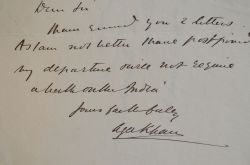 Dear Sir
Thanks you 2 letters
As I am not better have postponed
my departure will not require
a berth on the India
Yours faithfully
Aga Khan